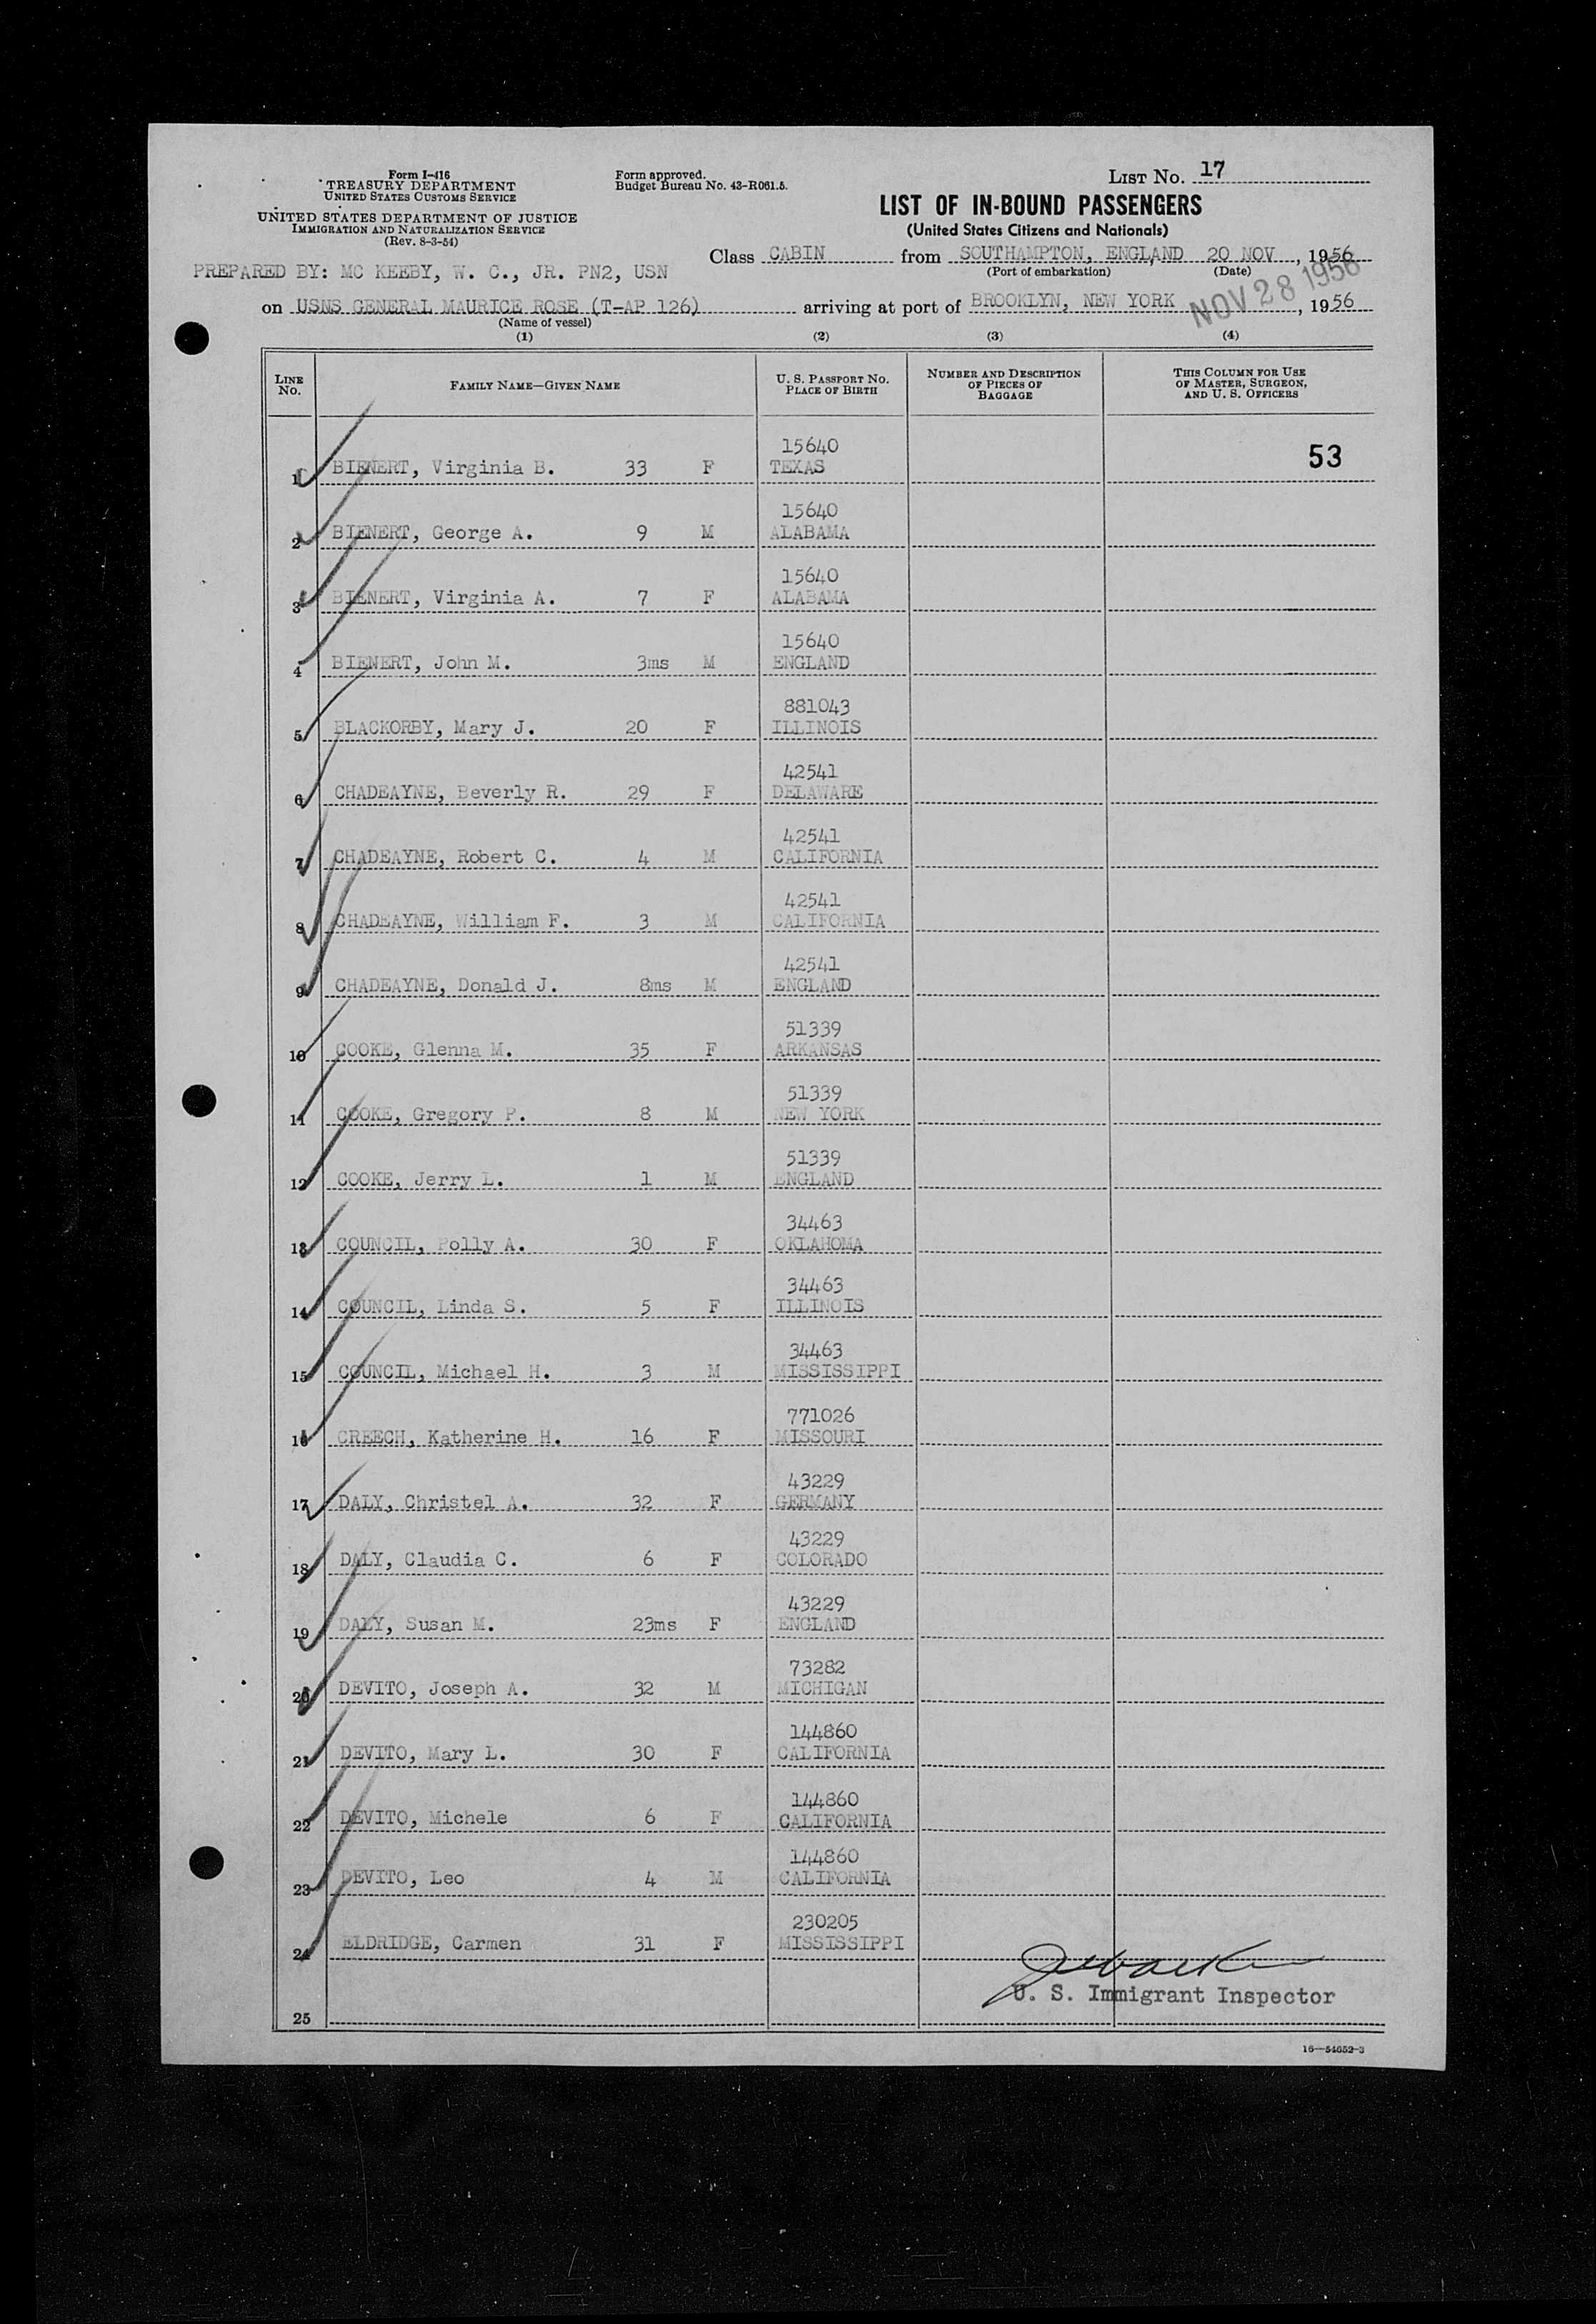 Form I-416
TREASURY DEPARTMENT
UNITED STATES CUSTOMS SERVICE
UNITED STATES DEPARTMENT OF JUSTICE
IMMIGRATION AND NATURALIZATION SERVICE
(Rev. 8-3-54)
Form approved.
Budget Bureau No. 43-R061.5.
LIST NO. 17
LIST OF IN-BOUND PASSENGERS
(United States Citizens and Nationals)
Class CABIN from SOUTHAMPTON, ENGLAND 20 NOV, 1956
(Port of embarkation) (Date)
PREPARED BY: MC KEEBY, W. C., JR. PN2, USN
NOV 28 1956
on USNS GENERAL MAURICE ROSE (T-AP 126) arriving at port of BROOKLYN, NEW YORK, 1956
(Name of vessel)
(1) (2) (3) (4)
LINE NO. FAMILY NAME—GIVEN NAME U. S. PASSPORT NO. PLACE OF BIRTH NUMBER AND DESCRIPTION OF PIECES OF BAGGAGE THIS COLUMN FOR USE OF MASTER, SURGEON, AND U. S. OFFICERS
15640
1 BIENERT, Virginia B. 33 F TEXAS 53
15640
2 BIENERT, George A. 9 M ALABAMA
15640
3 BIENERT, Virginia A. 7 F ALABAMA
15640
4 BIENERT, John M. 3ms M ENGLAND
881043
5 BLACKORBY, Mary J. 20 F ILLINOIS
42541
6 CHADEAYNE, Beverly R. 29 F DELAWARE
42541
7 CHADEAYNE, Robert C. 4 M CALIFORNIA
42541
8 CHADEAYNE, William F. 3 M CALIFORNIA
42541
9 CHADEAYNE, Donald J. 8ms M ENGLAND
51339
10 COOKE, Glenna M. 35 F ARKANSAS
51339
11 COOKE, Gregory P. 8 M NEW YORK
51339
12 COOKE, Jerry L. 1 M ENGLAND
34463
13 COUNCIL, Polly A. 30 F OKLAHOMA
34463
14 COUNCIL, Linda S. 5 F ILLINOIS
34463
15 COUNCIL, Michael H. 3 M MISSISSIPPI
771026
16 CREECH, Katherine H. 16 F MISSOURI
43229
17 DALY, Christel A. 32 F GERMANY
43229
18 DALY, Claudia C. 6 F COLORADO
43229
19 DALY, Susan M. 23ms F ENGLAND
73282
20 DEVITO, Joseph A. 32 M MICHIGAN
144860
21 DEVITO, Mary L. 30 F CALIFORNIA
144860
22 DEVITO, Michele 6 F CALIFORNIA
144860
23 DEVITO, Leo 4 M CALIFORNIA
230205
24 ELDRIDGE, Carmen 31 F MISSISSIPPI
U. S. Immigrant Inspector
25
16—54652-3